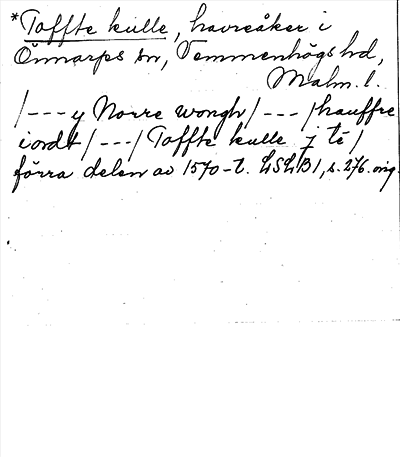 *Toffte kulle, havreåker i
Önnarps sn, Vemmenhögs hd,
Malm. l.
/---y Norre wongh/---/hauffre
iordt/---/Toffte kulle j té/
förra delen av 1570-t. LSLB1, s. 276. orig.